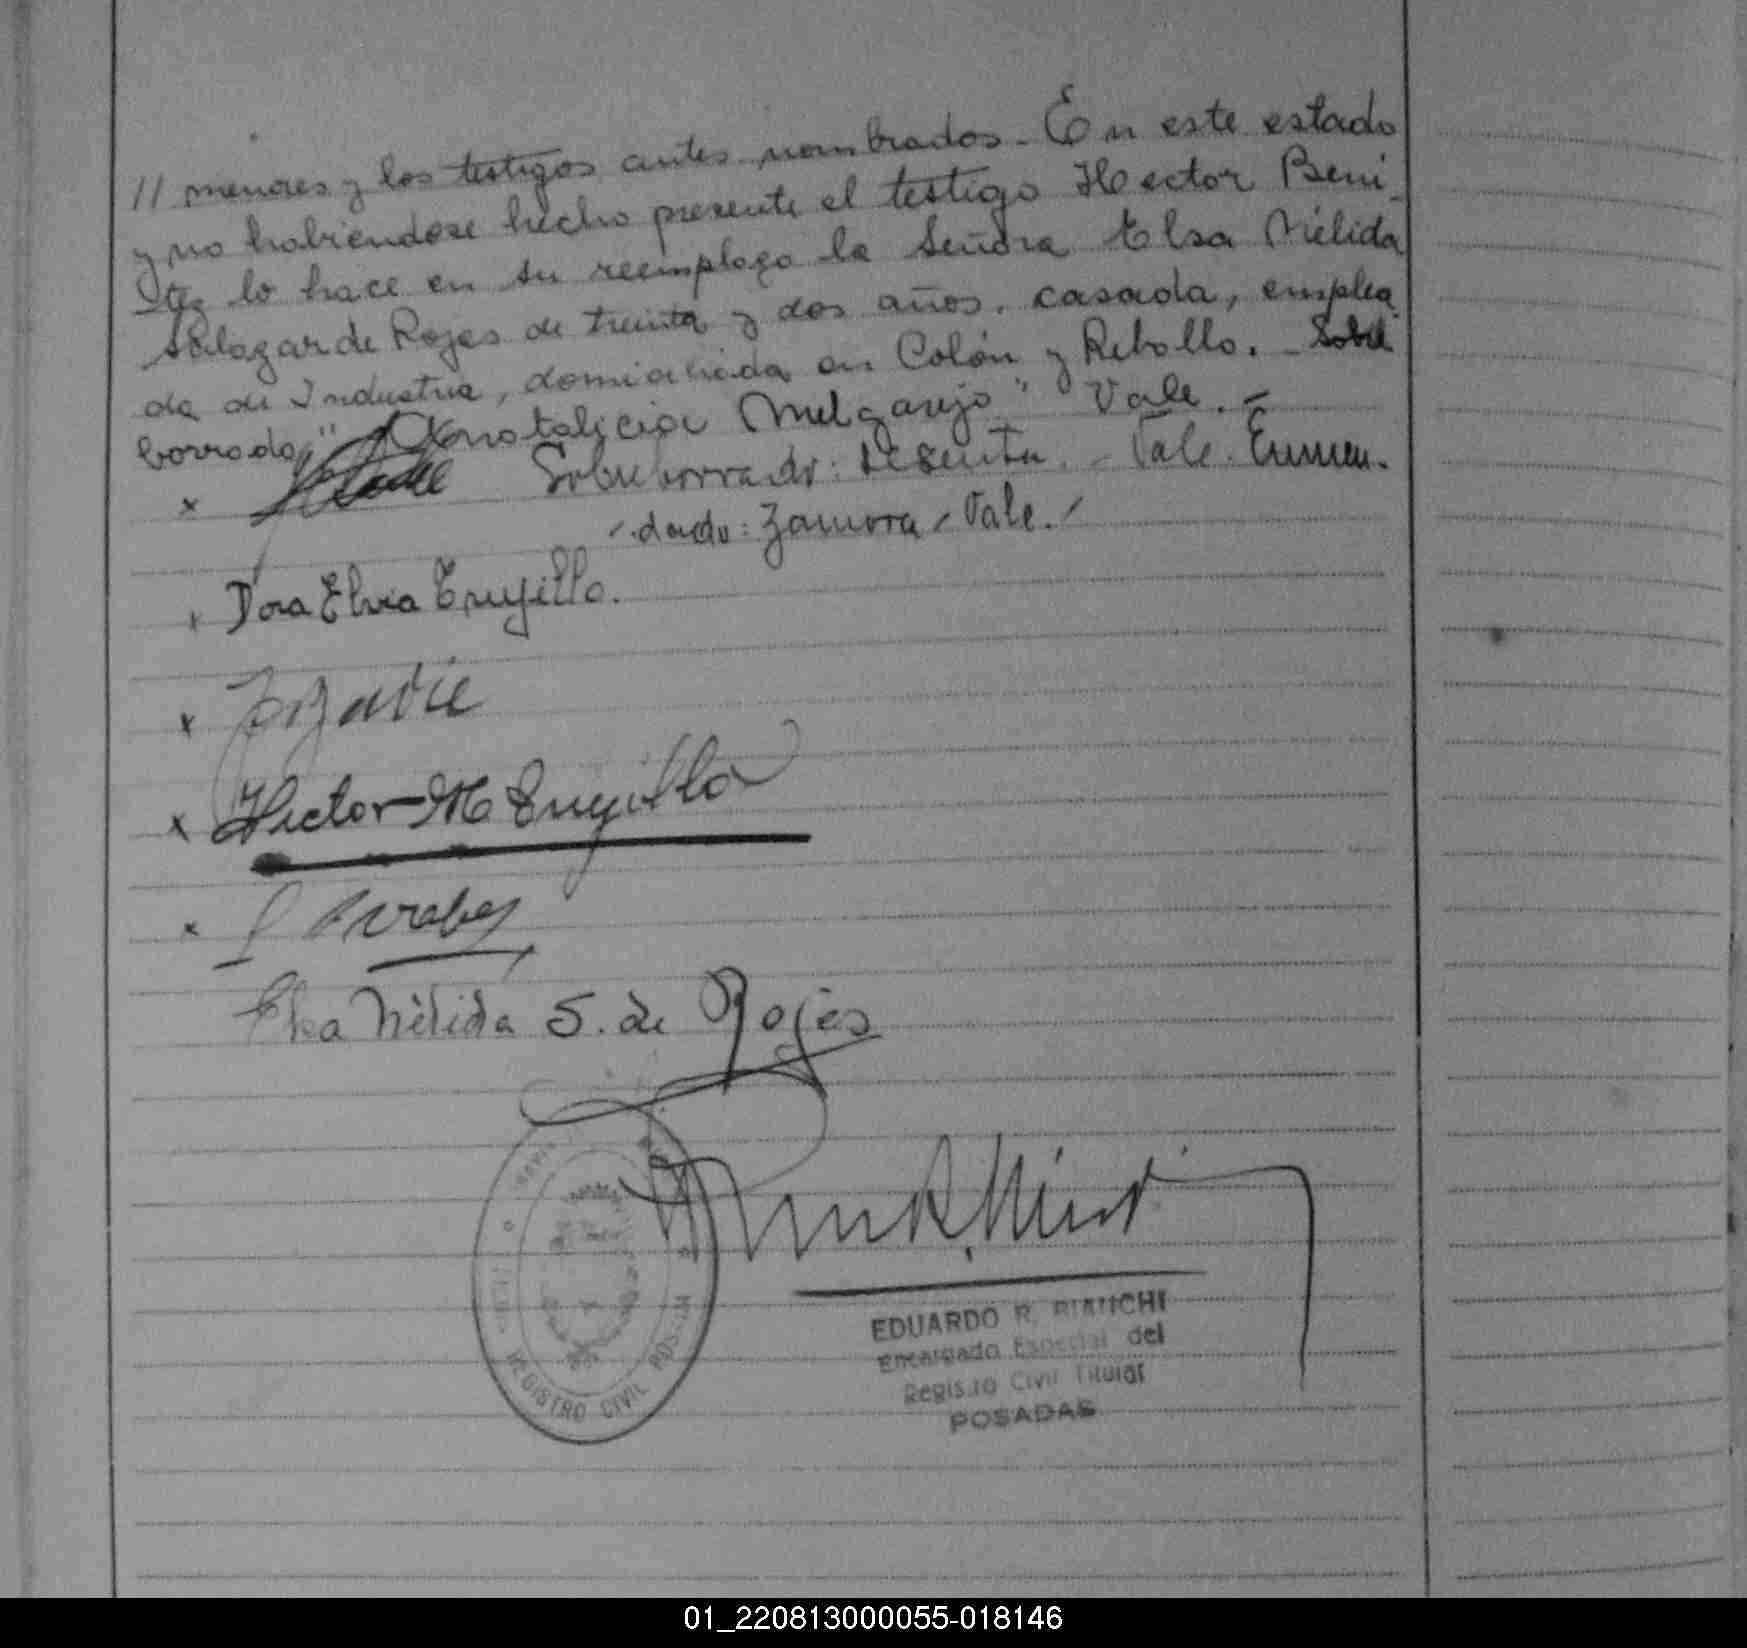 // menores y los testigos antes nombrados - En este estado
y no habiéndose hecho presente el testigo Hector Bení-
tez lo hace en su reemplazo la Señora Elsa Nélida
Salazar de Rojas de treinta y dos años. casada, emplea
da de Industria, domiciliada en Colón y Rebollo. - Sobre
borrado, " natalicia Melgarejo" Vale. -
x Sobreborrado: - Vale. Enmen-
- dado: Zamora - Vale. -
x Dora Elvia Trujillo.
x
x Hector M Trujillo
x
Elsa Nélida S. de Rojas
REGISTRO CIVIL
EDUARDO R. BIANCHI
Encargado Especial del
Registro Civil Titular
POSADAS
01_220813000055-018146